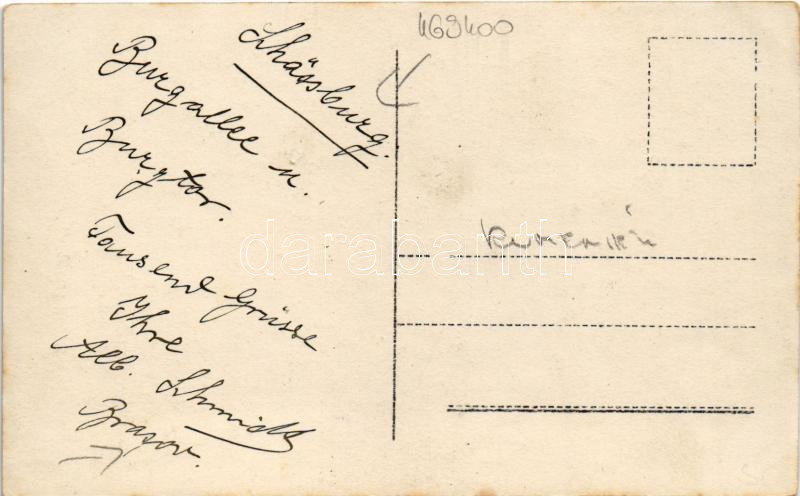 Schässburg.
Burgallee u.
Burgtor.
Tausend Grüsse
Ihre
Alb. Schmidt
Brasov.
469400
darabanth